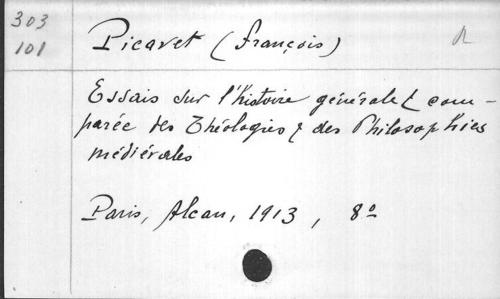 303
101
Picavet (François) R
Essais sur l'histoire générale & com-
parée des Théologies & des Philosophies
médiévales
Paris, Alcan, 1913, 8º